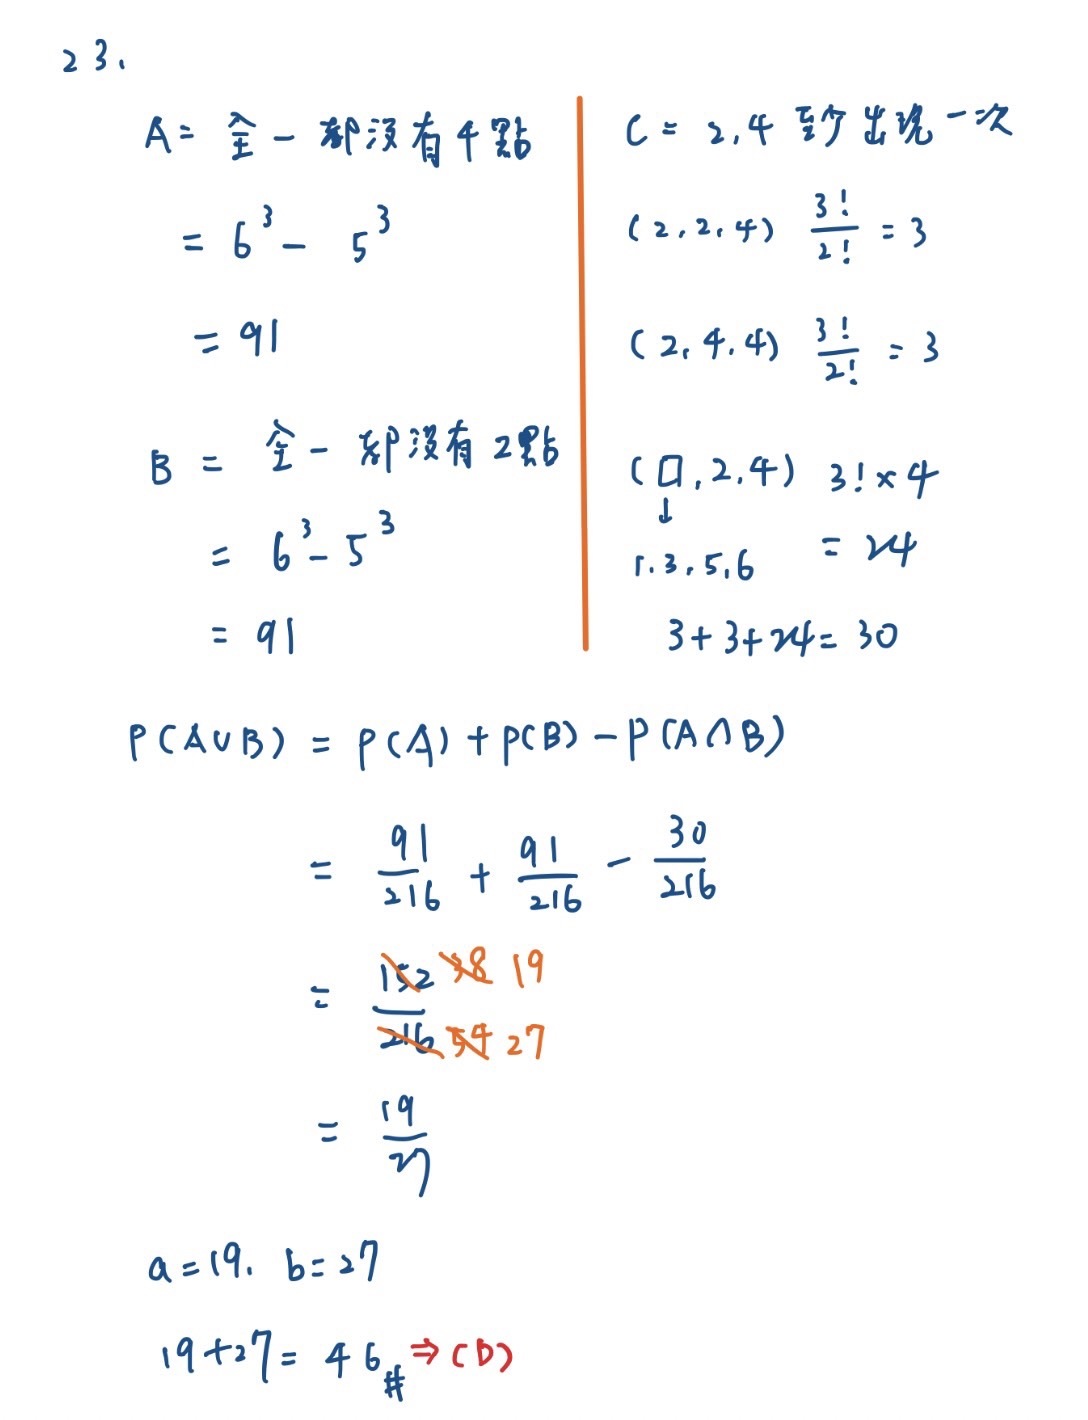 23.
A = 全 - 都沒有4點
= 6³ - 5³
= 91
B = 全 - 都沒有2點
= 6³ - 5³
= 91
C = 2,4 至少出現一次
(2,2,4) 3!/2! = 3
(2,4,4) 3!/2! = 3
(□,2,4) 3!×4
↓
1.3.5.6 = 24
3+3+24= 30
P(A∪B) = P(A) + P(B) - P(A∩B)
= 91/216 + 91/216 - 30/216
= 152/216 38/54 19/27
= 19/27
a=19. b=27
19+27= 46# ⇒ (D)